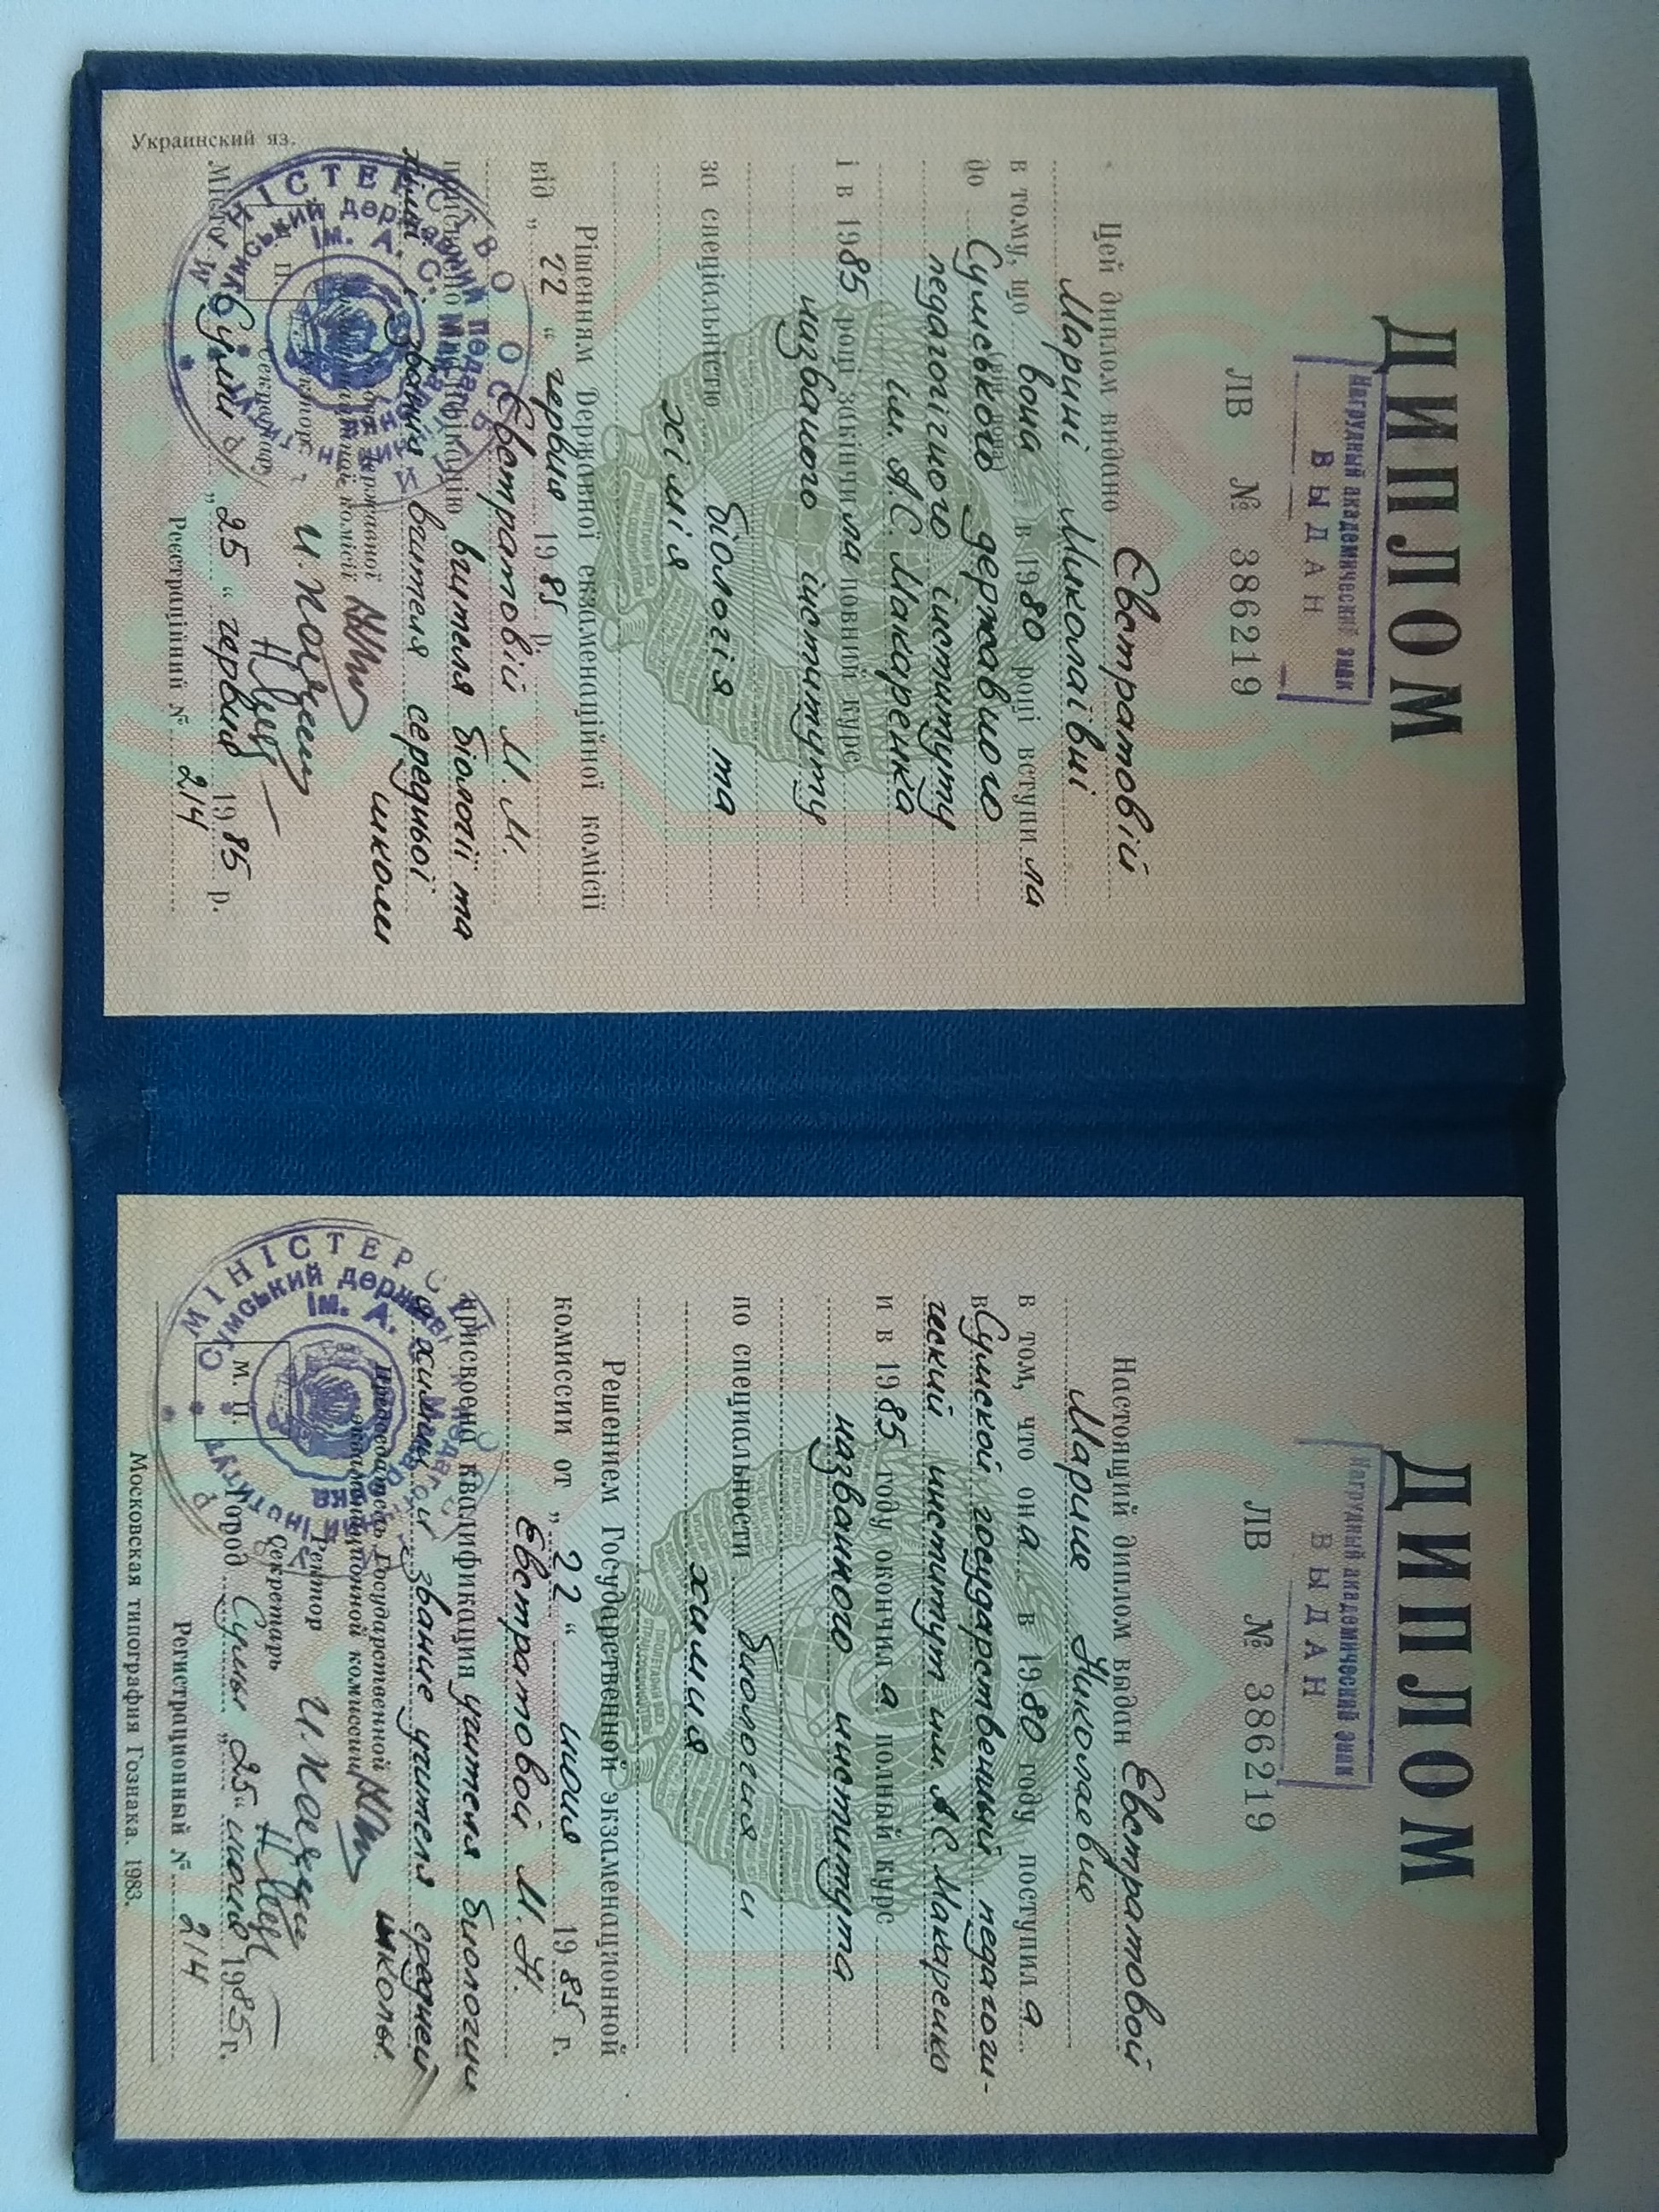 ДИПЛОМ
Нагрудный академический знак
ВЫДАН
ЛВ № 386219
Цей диплом видано Євстратовій
Марині Миколаївні
в тому, що вона в 1980 році вступила
до Сумського державного
педагогічного інституту
ім. А.С. Макаренка
і в 1985 році закінчила повний курс
названого інституту
за спеціальністю біологія та
хімія
Рішенням Державної екзаменаційної комісії
від „22“ червня 1985 р.
Євстратовій М. М.
присвоєно кваліфікацію вчителя біології та
хімії і звання вчителя середньої
школи
Голова Державної
екзаменаційної комісії
Ректор
Секретар
Місто Суми „25“ червня 1985 р.
Реєстраційний № 214
Украинский яз.
М. П.
МІНІСТЕРСТВО
Сумський державний педагогічний інститут
ім. А. С. Макаренка
ДИПЛОМ
Нагрудный академический знак
ВЫДАН
ЛВ № 386219
Настоящий диплом выдан Евстратовой
Марине Николаевне
в том, что она в 1980 году поступила
в Сумской государственный педагоги-
ческий институт им. А.С. Макаренко
и в 1985 году окончила полный курс
названного института
по специальности биология и
химия
Решением Государственной экзаменационной
комиссии от „22“ июня 1985 г.
Евстратовой М. Н.
присвоена квалификация учителя биологии
и химии и звание учителя средней
школы.
Председатель Государственной
экзаменационной комиссии
Ректор
Секретарь
Город Сумы „25“ июня 1985 г.
Регистрационный № 214
Московская типография Гознака. 1983.
М. П.
МІНІСТЕРСТ
Сумський державний педагогічний інститут
ім. А.